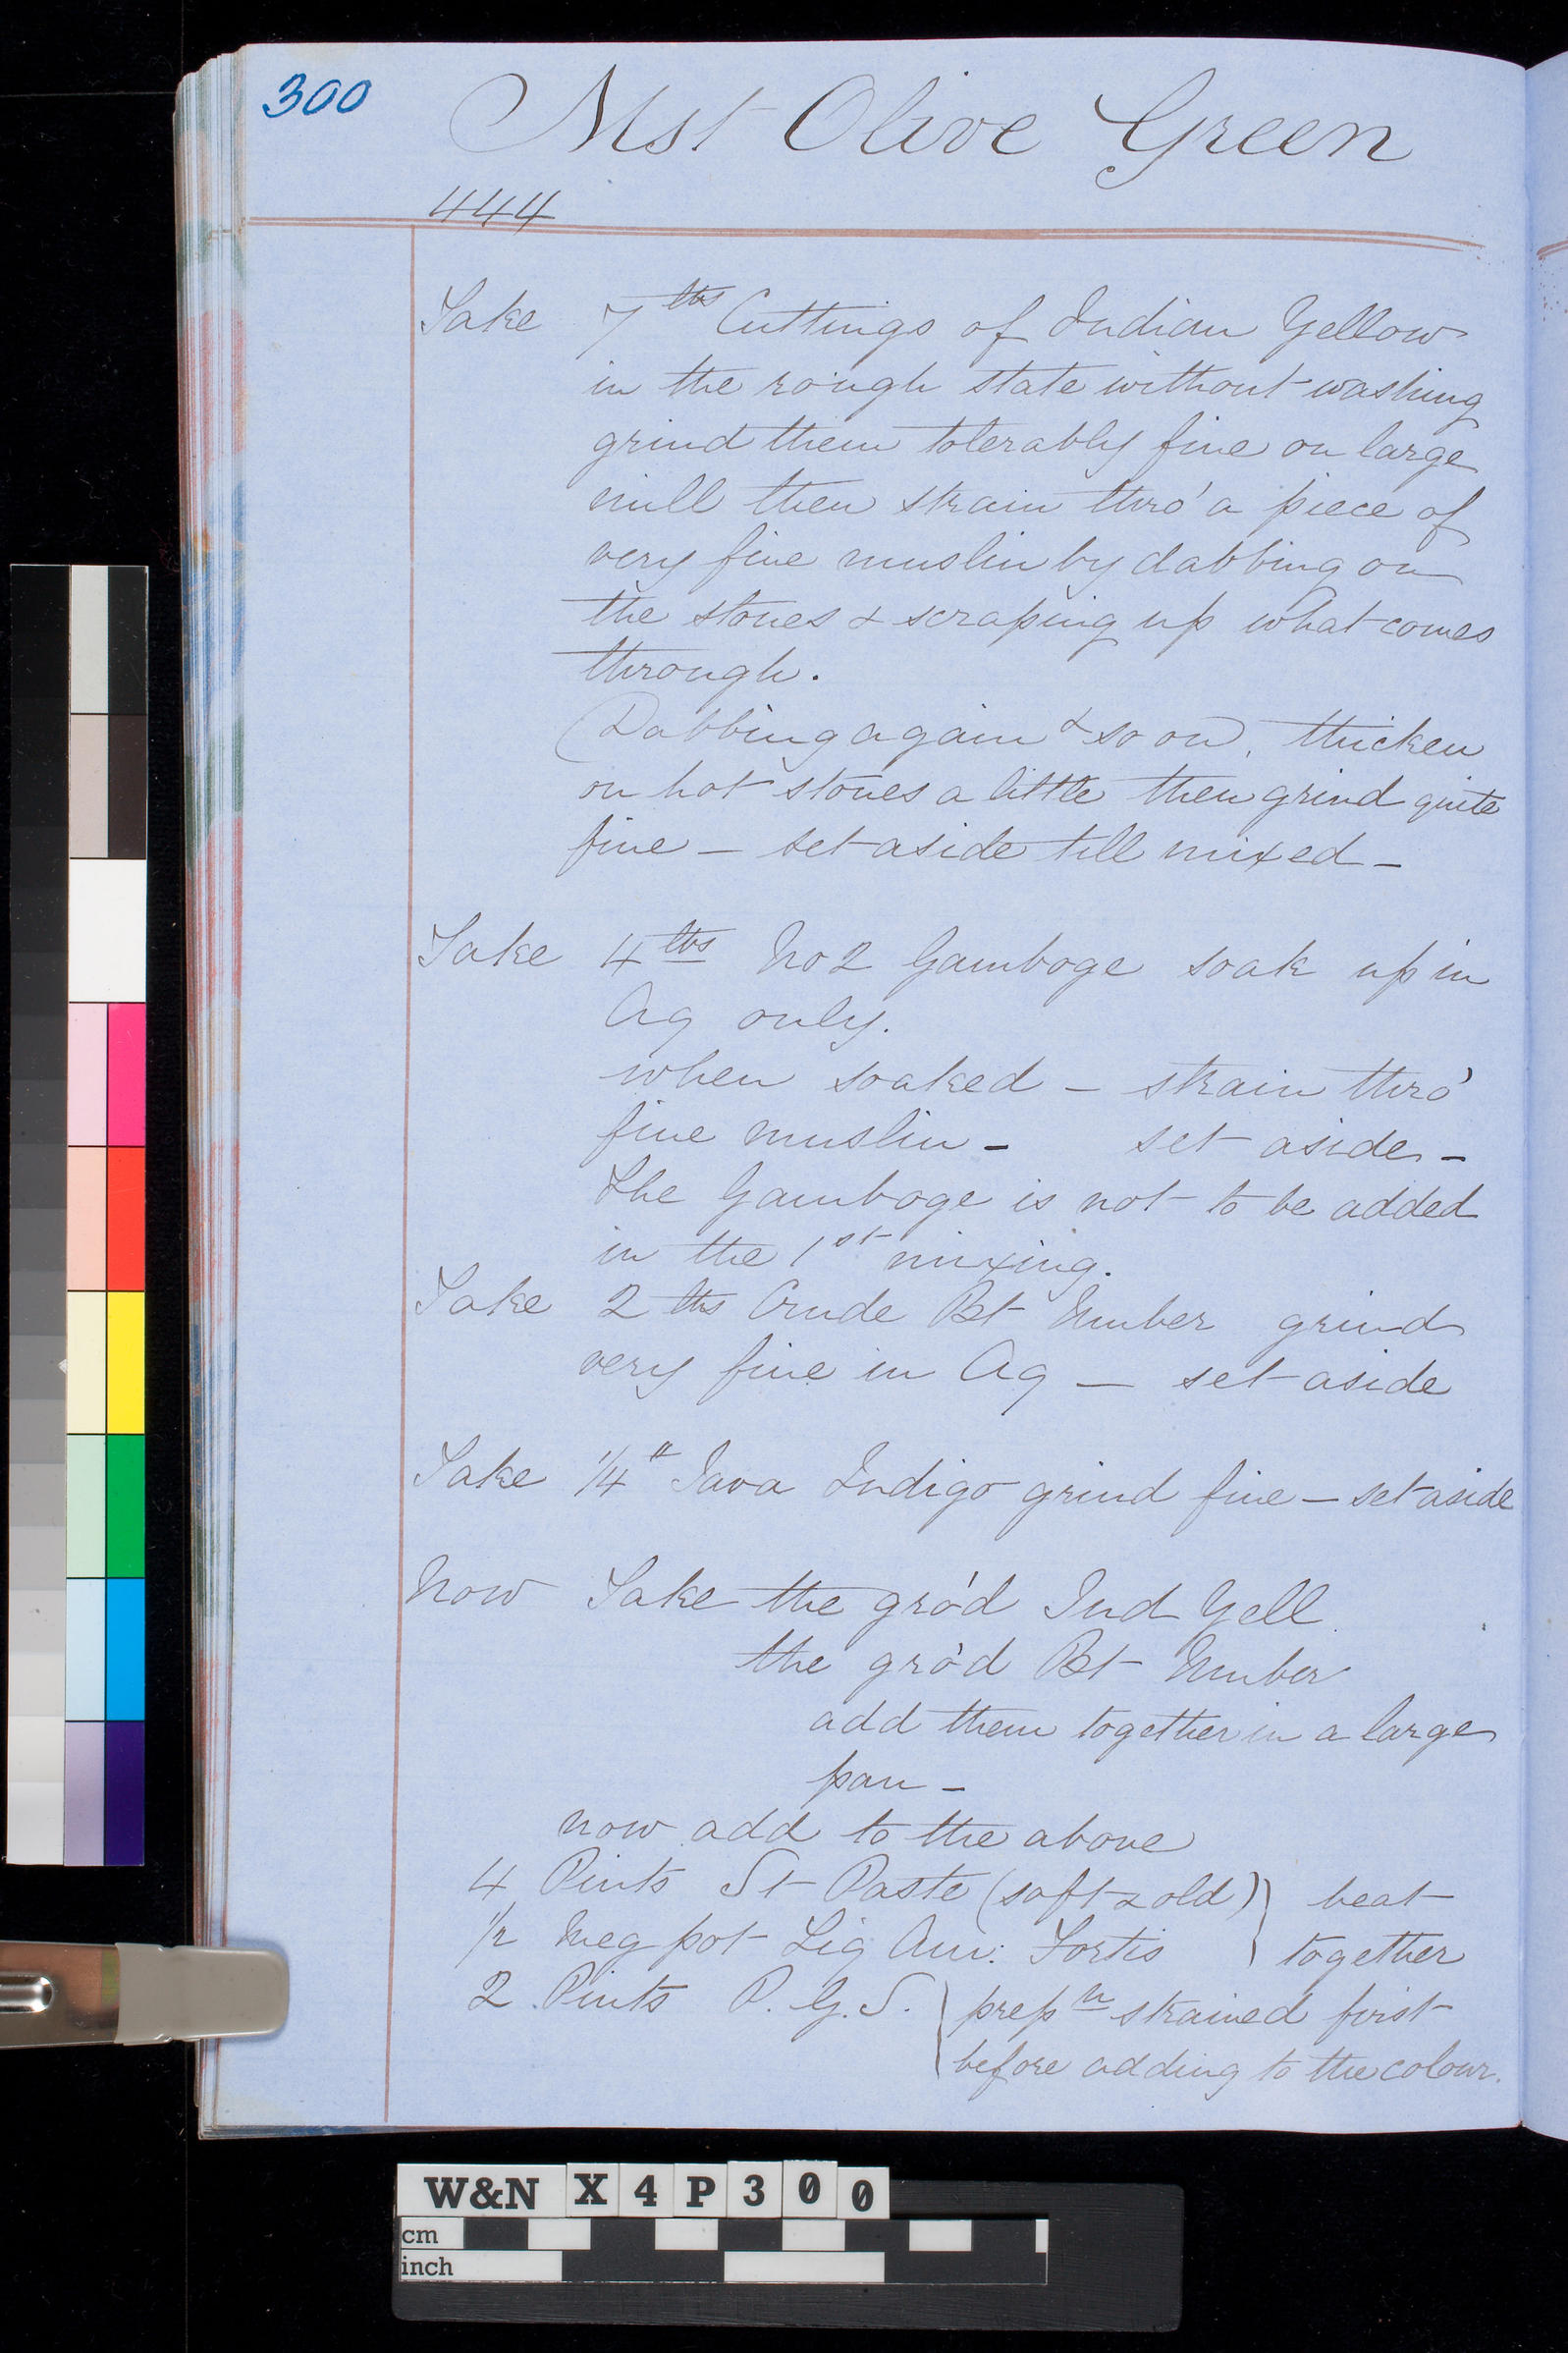 300
Mst Olive Green
444
Take 7 lbs Cuttings of Indian Yellow
in the rough state without washing
grind them tolerably fine on large
mill then strain thro' a piece of
very fine muslin by dabbing on
the stones & scraping up what comes
through.
(Dabbing again & so on, thicken
on hot stones a little then grind quite
fine – set aside till mixed –
Take 4 lbs No 2 Gamboge soak up in
Aq only.
when soaked – strain thro'
fine muslin – set aside –
The Gamboge is not to be added
in the 1st mixing.
Take 2 lbs Crude Bt Umber grind
very fine in Aq – set aside
Take 1/4 " Java Indigo grind fine – set aside
Now Take the gro'd Ind Yell
the gro'd Bt Umber
add them together in a large
pan –
now add to the above
4 Pints St Paste (soft & old) } beat
1/2 Meg pot Liq Am: Fortis } together
2 Pints P. G. S. } prepn strained first
before adding to the colour.
W&N X4P300
cm
inch